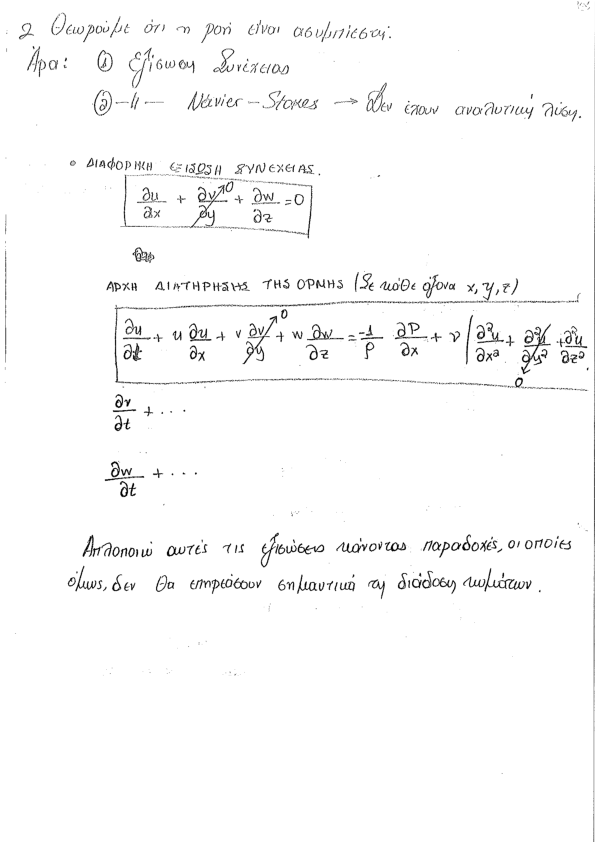 2 Θεωρούμε ότι η ροή είναι ασυμπίεστη.
Άρα: ① Εξίσωση Συνέχειας
② -||- Navier-Stokes → Δεν έχουν αναλυτική λύση.
• ΔΙΑΦΟΡΙΚΗ ΕΞΙΣΩΣΗ ΣΥΝΕΧΕΙΑΣ.
∂u/∂x + ∂v/∂y↗0 + ∂w/∂z = 0
ΑΡΧΗ ΔΙΑΤΗΡΗΣΗΣ ΤΗΣ ΟΡΜΗΣ (Σε κάθε άξονα x, y, z)
∂u/∂t + u ∂u/∂x + v ∂v/∂y↗0 + w ∂w/∂z = -1/ρ ∂P/∂x + ν (∂²u/∂x² + ∂²u/∂y²↙0 + ∂²u/∂z²
∂v/∂t + ...
∂w/∂t + ...
Απλοποιώ αυτές τις εξισώσεις κάνοντας παραδοχές, οι οποίες
όμως, δεν θα επηρεάσουν σημαντικά τη διάδοση κυμάτων.